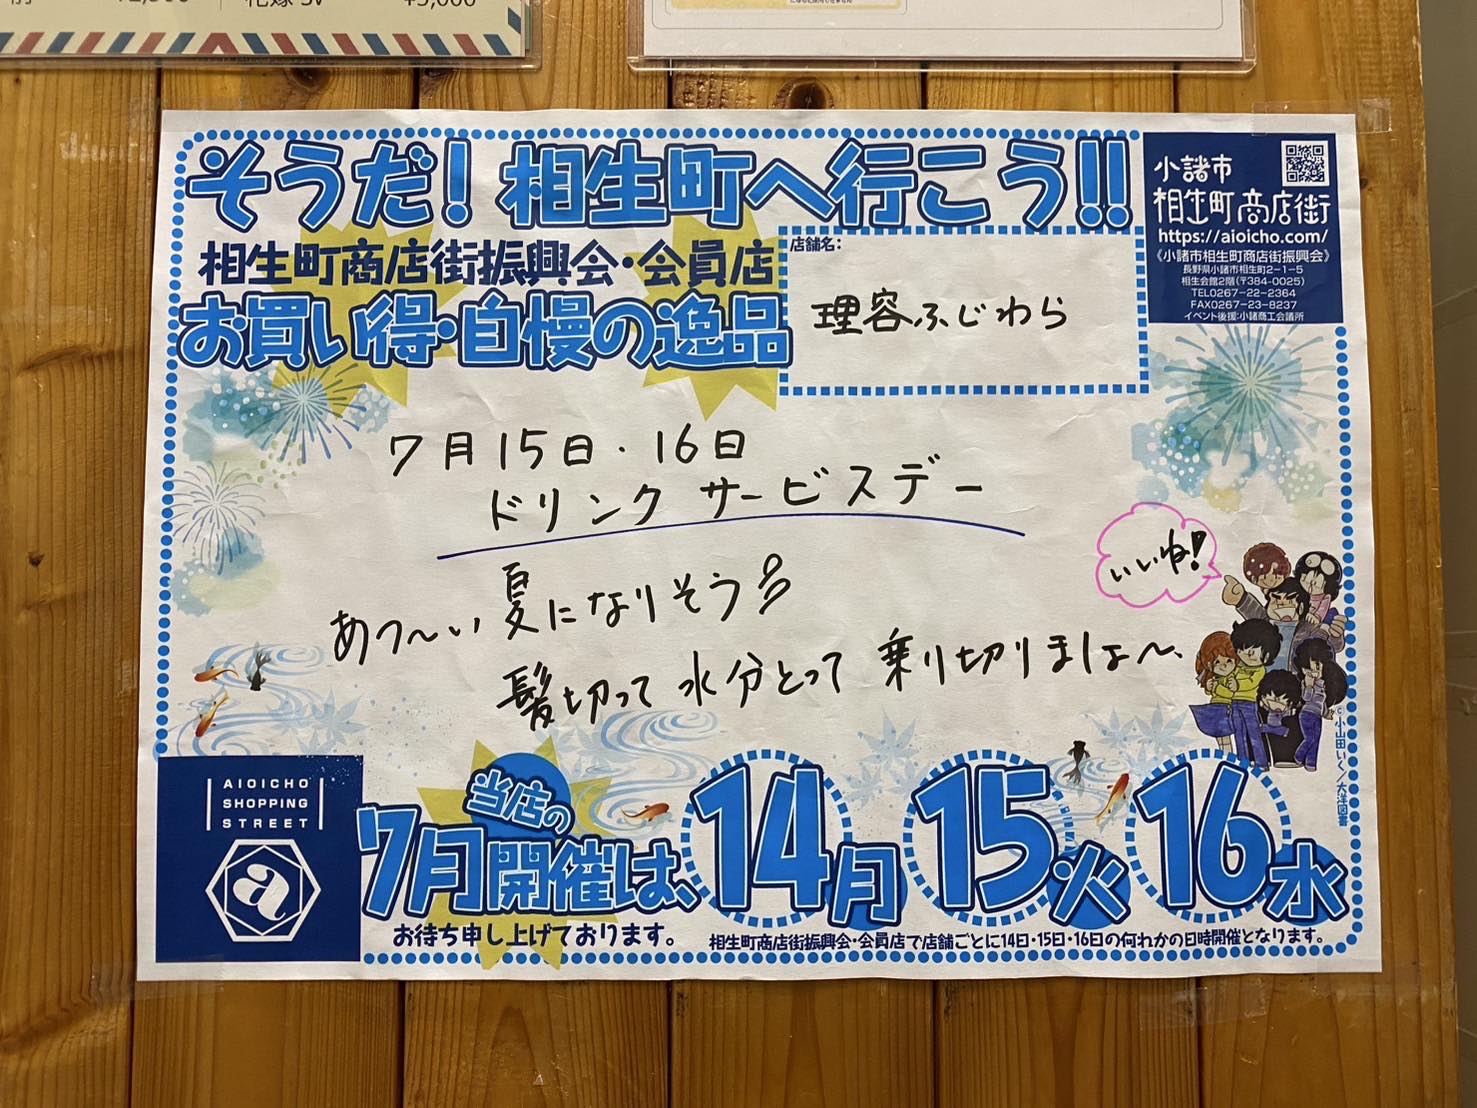 ¥5,000
そうだ！相生町へ行こう!!
相生町商店街振興会・会員店
お買い得・自慢の逸品
店舗名：
理容ふじわら
小諸市
相生町商店街
https://aioicho.com/
《小諸市相生町商店街振興会》
長野県小諸市相生町2-1-5
相生会館2階(〒384-0025)
TEL0267-22-2364
FAX0267-23-8237
イベント後援:小諸商工会議所
7月15日・16日
ドリンクサービスデー
あつ〜い夏になりそう
髪切って水分とって乗り切りましょ〜、
いいね!
©小山田いく/大洋図書
AIOICHO
SHOPPING
STREET
a
当店の
7月開催は、14月15火16水
お待ち申し上げております。
相生町商店街振興会・会員店で店舗ごとに14日・15日・16日の何れかの日時開催となります。